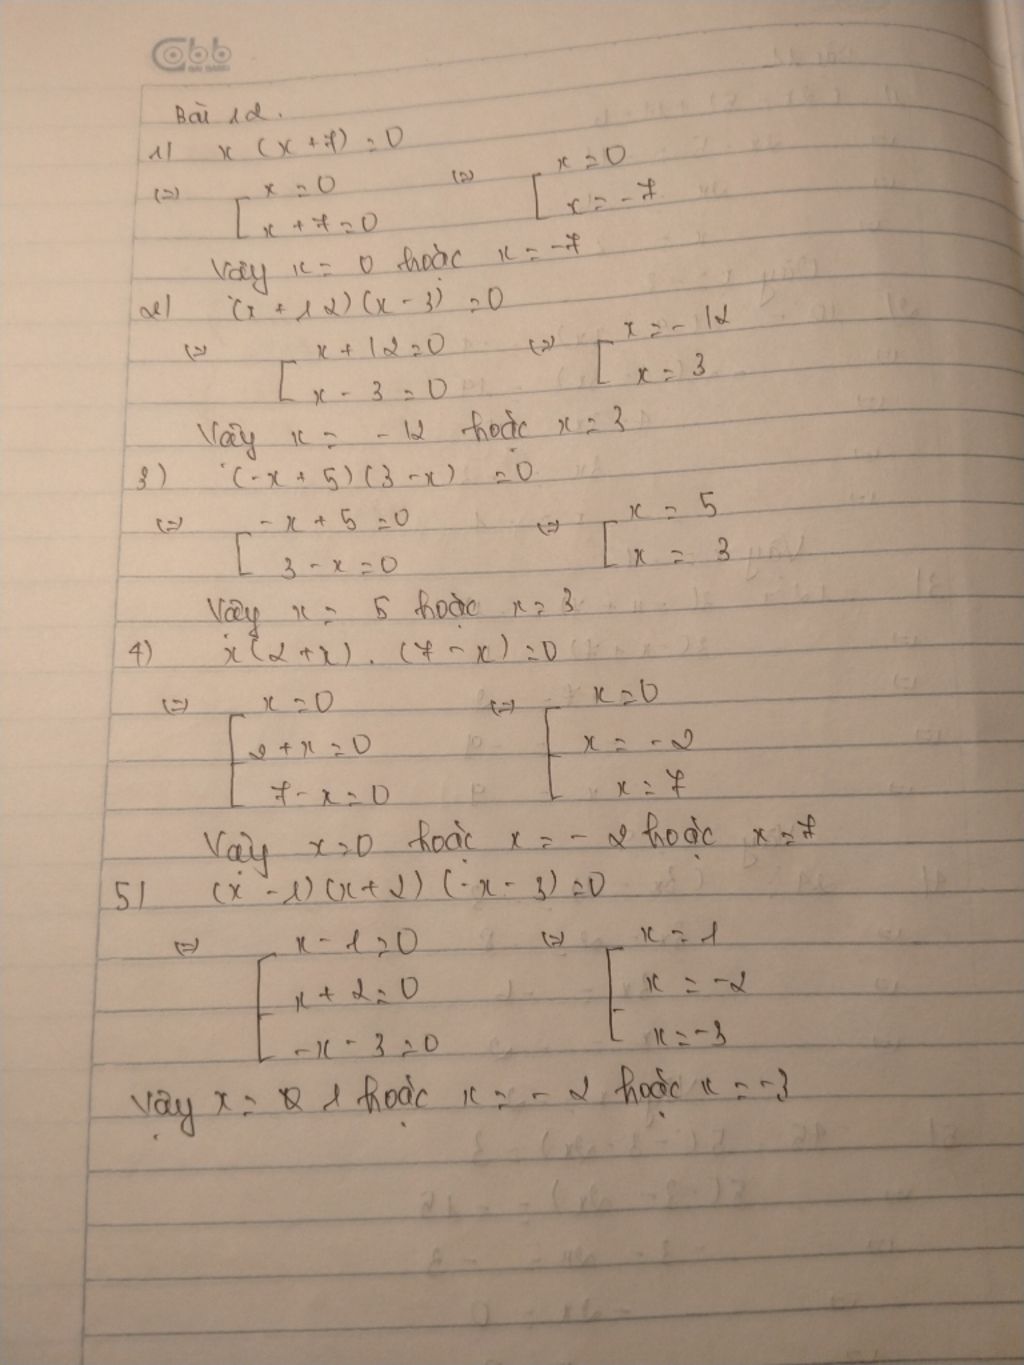 Cabb
Bài 12.
1) x (x+7) = 0
(=) [ x = 0 (=) [ x = 0
x + 7 = 0 x = -7
Vậy x = 0 hoặc x = -7
2) (x + 12) (x - 3) = 0
(=) [ x + 12 = 0 (=) [ x = - 12
x - 3 = 0 x = 3
Vậy x = - 12 hoặc x = 3
3) (-x + 5) (3 - x) = 0
(=) [ -x + 5 = 0 (=) [ x = 5
3 - x = 0 x = 3
Vậy x = 5 hoặc x = 3
4) x (2 + x) . (7 - x) = 0
(=) [ x = 0 (=) [ x = 0
2 + x = 0 x = -2
7 - x = 0 x = 7
Vậy x = 0 hoặc x = - 2 hoặc x = 7
5) (x - 1) (x + 2) (-x - 3) = 0
(=) [ x - 1 = 0 (=) [ x = 1
x + 2 = 0 x = -2
-x - 3 = 0 x = -3
Vậy x = 1 hoặc x = - 2 hoặc x = -3